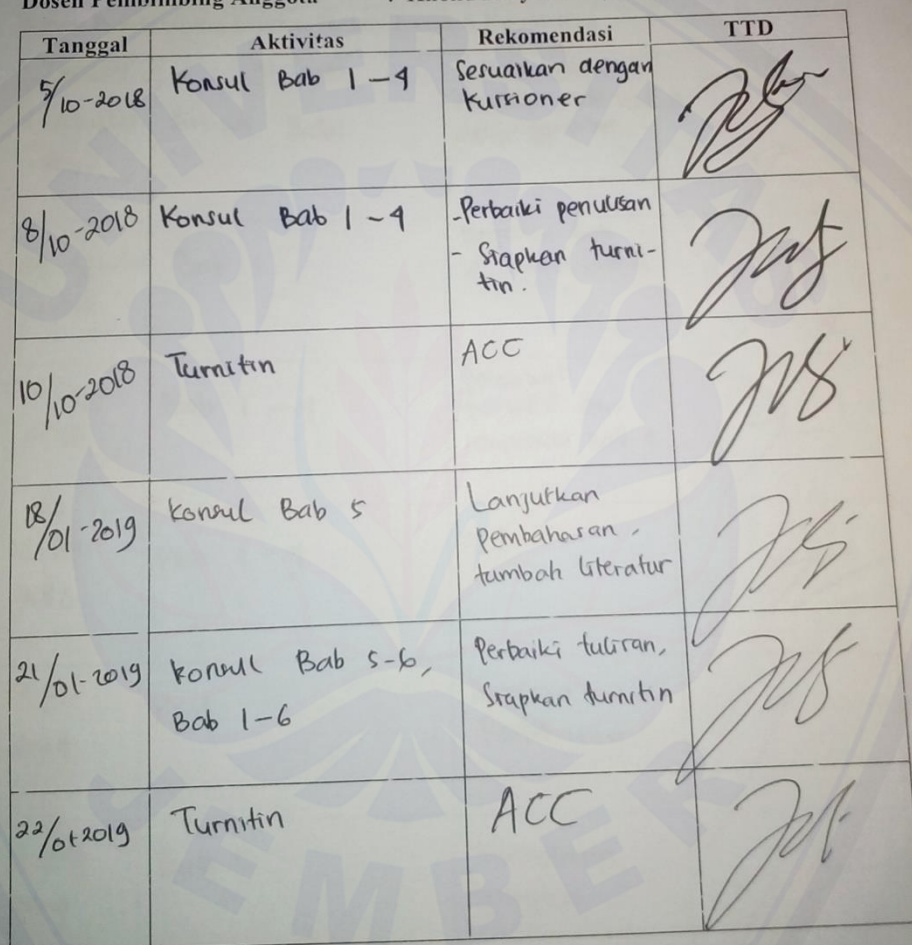 Dosen Pembimbing Anggota
Tanggal Aktivitas Rekomendasi TTD
5/10-2018 Konsul Bab 1-4 Sesuaikan dengan
kuisioner
8/10-2018 Konsul Bab 1-4 -Perbaiki penulisan
- Siapkan turni-
tin.
10/10-2018 Turnitin ACC
18/01-2019 Konsul Bab 5 Lanjutkan
Pembahasan,
tambah literatur
21/01-2019 Konsul Bab 5-6, Perbaiki tulisan,
Bab 1-6 Siapkan turnitin
22/01-2019 Turnitin ACC
UNIVERSITAS
JEMBER